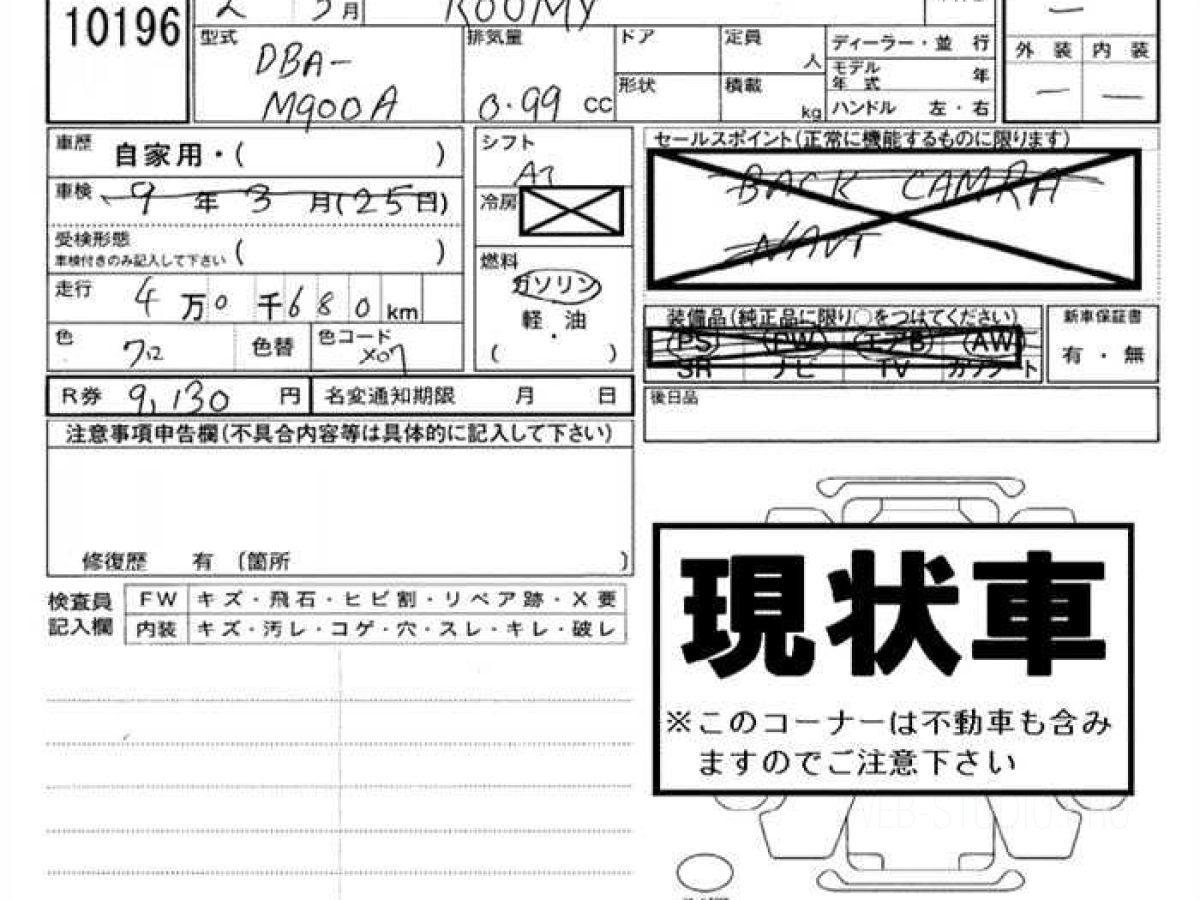 10196
2 3月 ROOMY
型式 DBA-M900A
排気量 0.99 CC
ドア
定員 人
形状
積載 kg
ディーラー・並 行
モデル年式 年
ハンドル 左・右
外 装 内 装
車歴 自家用・( )
車検 9年3月(25日)
受検形態
車検付きのみ記入して下さい ( )
走行 4万0千680km
色 色替
色コード X07
シフト AT
冷房
燃料 ガソリン
軽・油
( )
R券 9,130円
名変通知期限 月 日
注意事項申告欄(不具合内容等は具体的に記入して下さい)
修復歴 有 〔箇所 〕
検査員記入欄
FW キズ・飛石・ヒビ割・リペア跡・X要
内装 キズ・汚レ・コゲ・穴・スレ・キレ・破レ
セールスポイント(正常に機能するものに限ります)
BACK CAMRA
NAVI
装備品(純正品に限り○をつけてください)
PS PW エアB AW
SR ナビ TV カワシート
新車保証書
有・無
後日品
現状車
※このコーナーは不動車も含み
ますのでご注意下さい